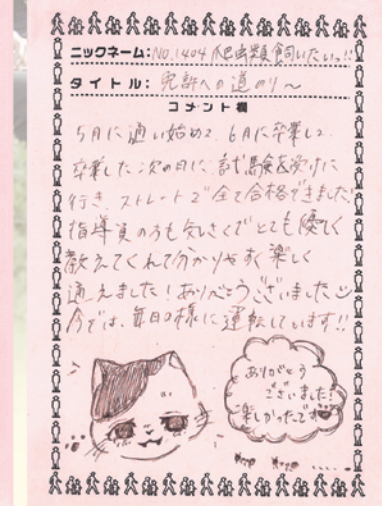 ニックネーム:NO.1404 爬虫類飼いたいっ!!
タイトル:免許への道のり~
コメント欄
5月に通い始めて、6月に卒業して
卒業した次の日に試験を受けに
行き、ストレートで全て合格できました!
指導員の方も気さくでとても優しく
教えてくれて分かりやすく楽しく
通えました!ありがとうございました
今では、毎日の様に運転しています!!
ありがとう
ございました!
楽しかったです